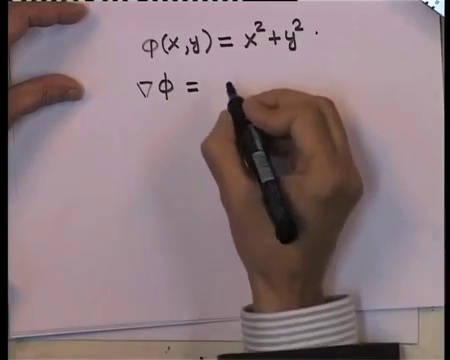 φ(x,y) = x² + y².
∇φ =